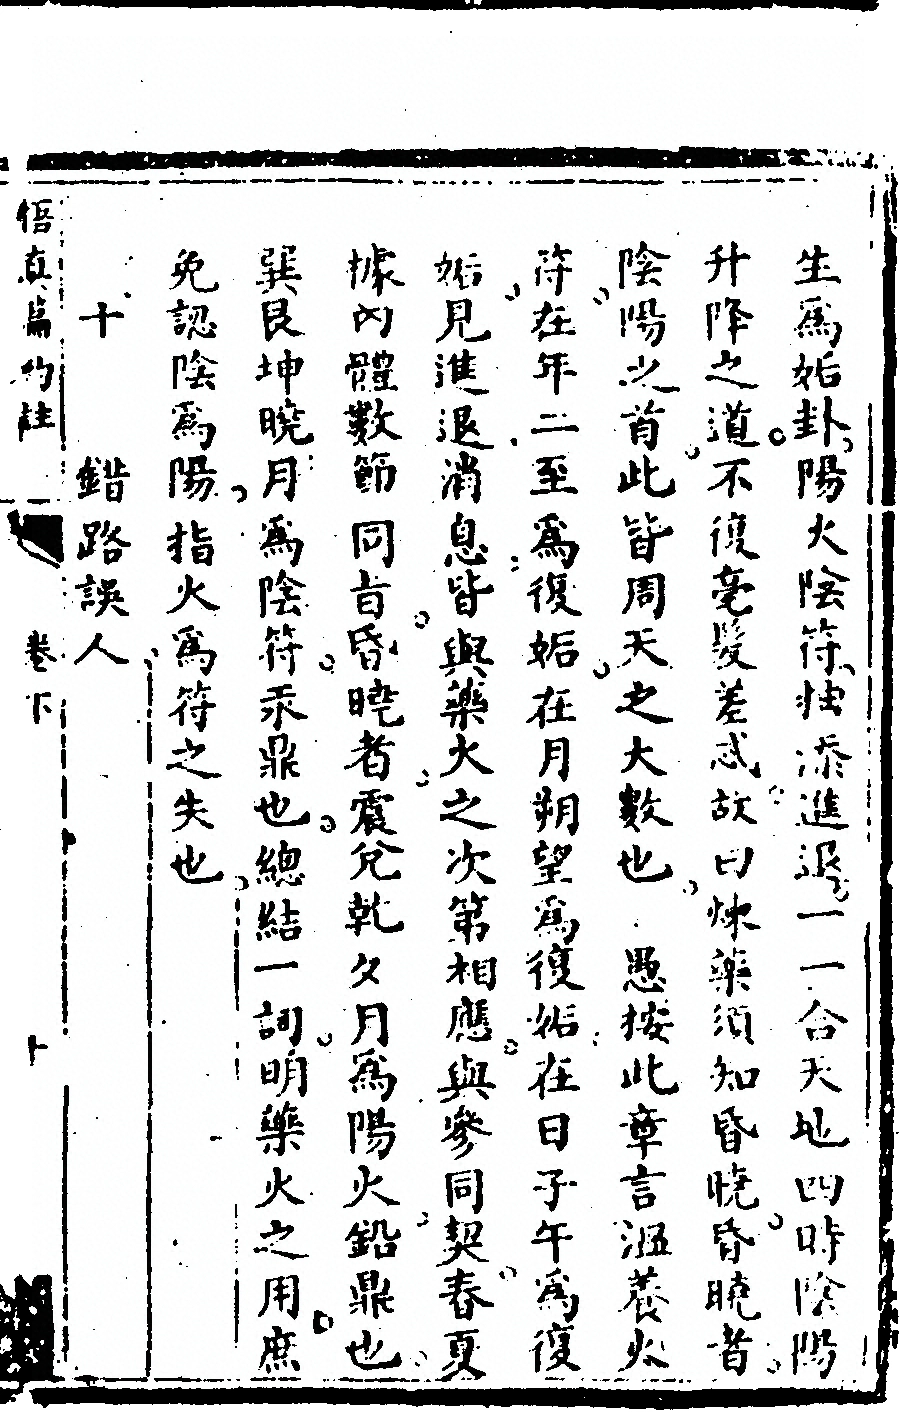 生爲姤卦陽火陰符抽添進退一一合天地四時陰陽
升降之道不復毫髮差忒故曰煉藥須知昏曉昏曉者
陰陽之首此皆周天之大數也愚按此章言溫養火
符在年二至爲復姤在月朔望爲復姤在日子午爲復
姤見進退消息皆與藥火之次第相應與參同契春夏
據內體數節同旨昏曉者震兌乾夕月爲陽火鉛鼎也
巽艮坤曉月爲陰符汞鼎也總結一詞明藥火之用庶
免認陰爲陽指火爲符之失也
十 錯路誤人
悟真篇約註 卷下